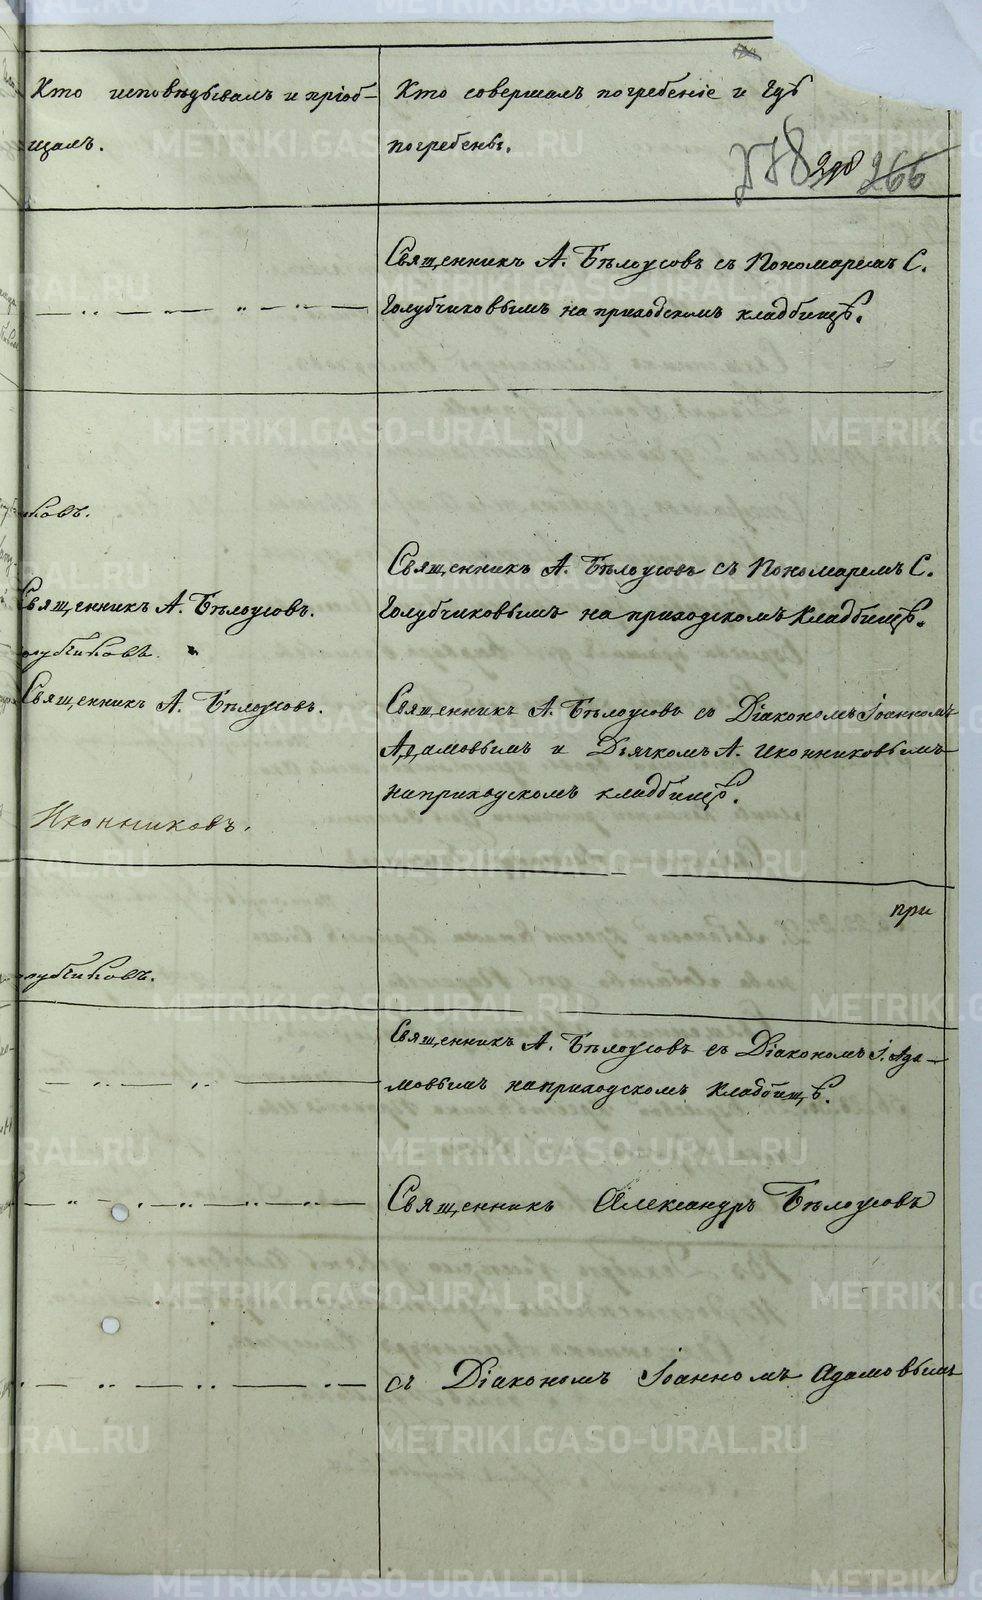 Кто исповѣдывалъ и пріоб-
щалъ.
Кто совершалъ погребеніе и гдѣ
погребены.
278
266
Священникъ А. Бѣлоусовъ съ Пономаремъ С.
Голубчиковымъ на приходскомъ кладбищѣ.
Священникъ А. Бѣлоусовъ съ Пономаремъ С.
Священникъ А. Бѣлоусовъ.
Голубчиковымъ на приходскомъ кладбищѣ.
олубчиковъ.
Священникъ А. Бѣлоусовъ.
Священникъ А. Бѣлоусовъ со Діакономъ Іоанномъ
Адамовымъ и Дьячкомъ А. Иконниковымъ
на приходскомъ кладбищѣ.
Иконниковъ.
при
олубчиковъ.
Священникъ А. Бѣлоусовъ съ Діакономъ І. Ада-
мовымъ на приходскомъ кладбищѣ.
Священникъ Александръ Бѣлоусовъ
съ Діакономъ Іоанномъ Адамовымъ
METRIKI.GASO-URAL.RU